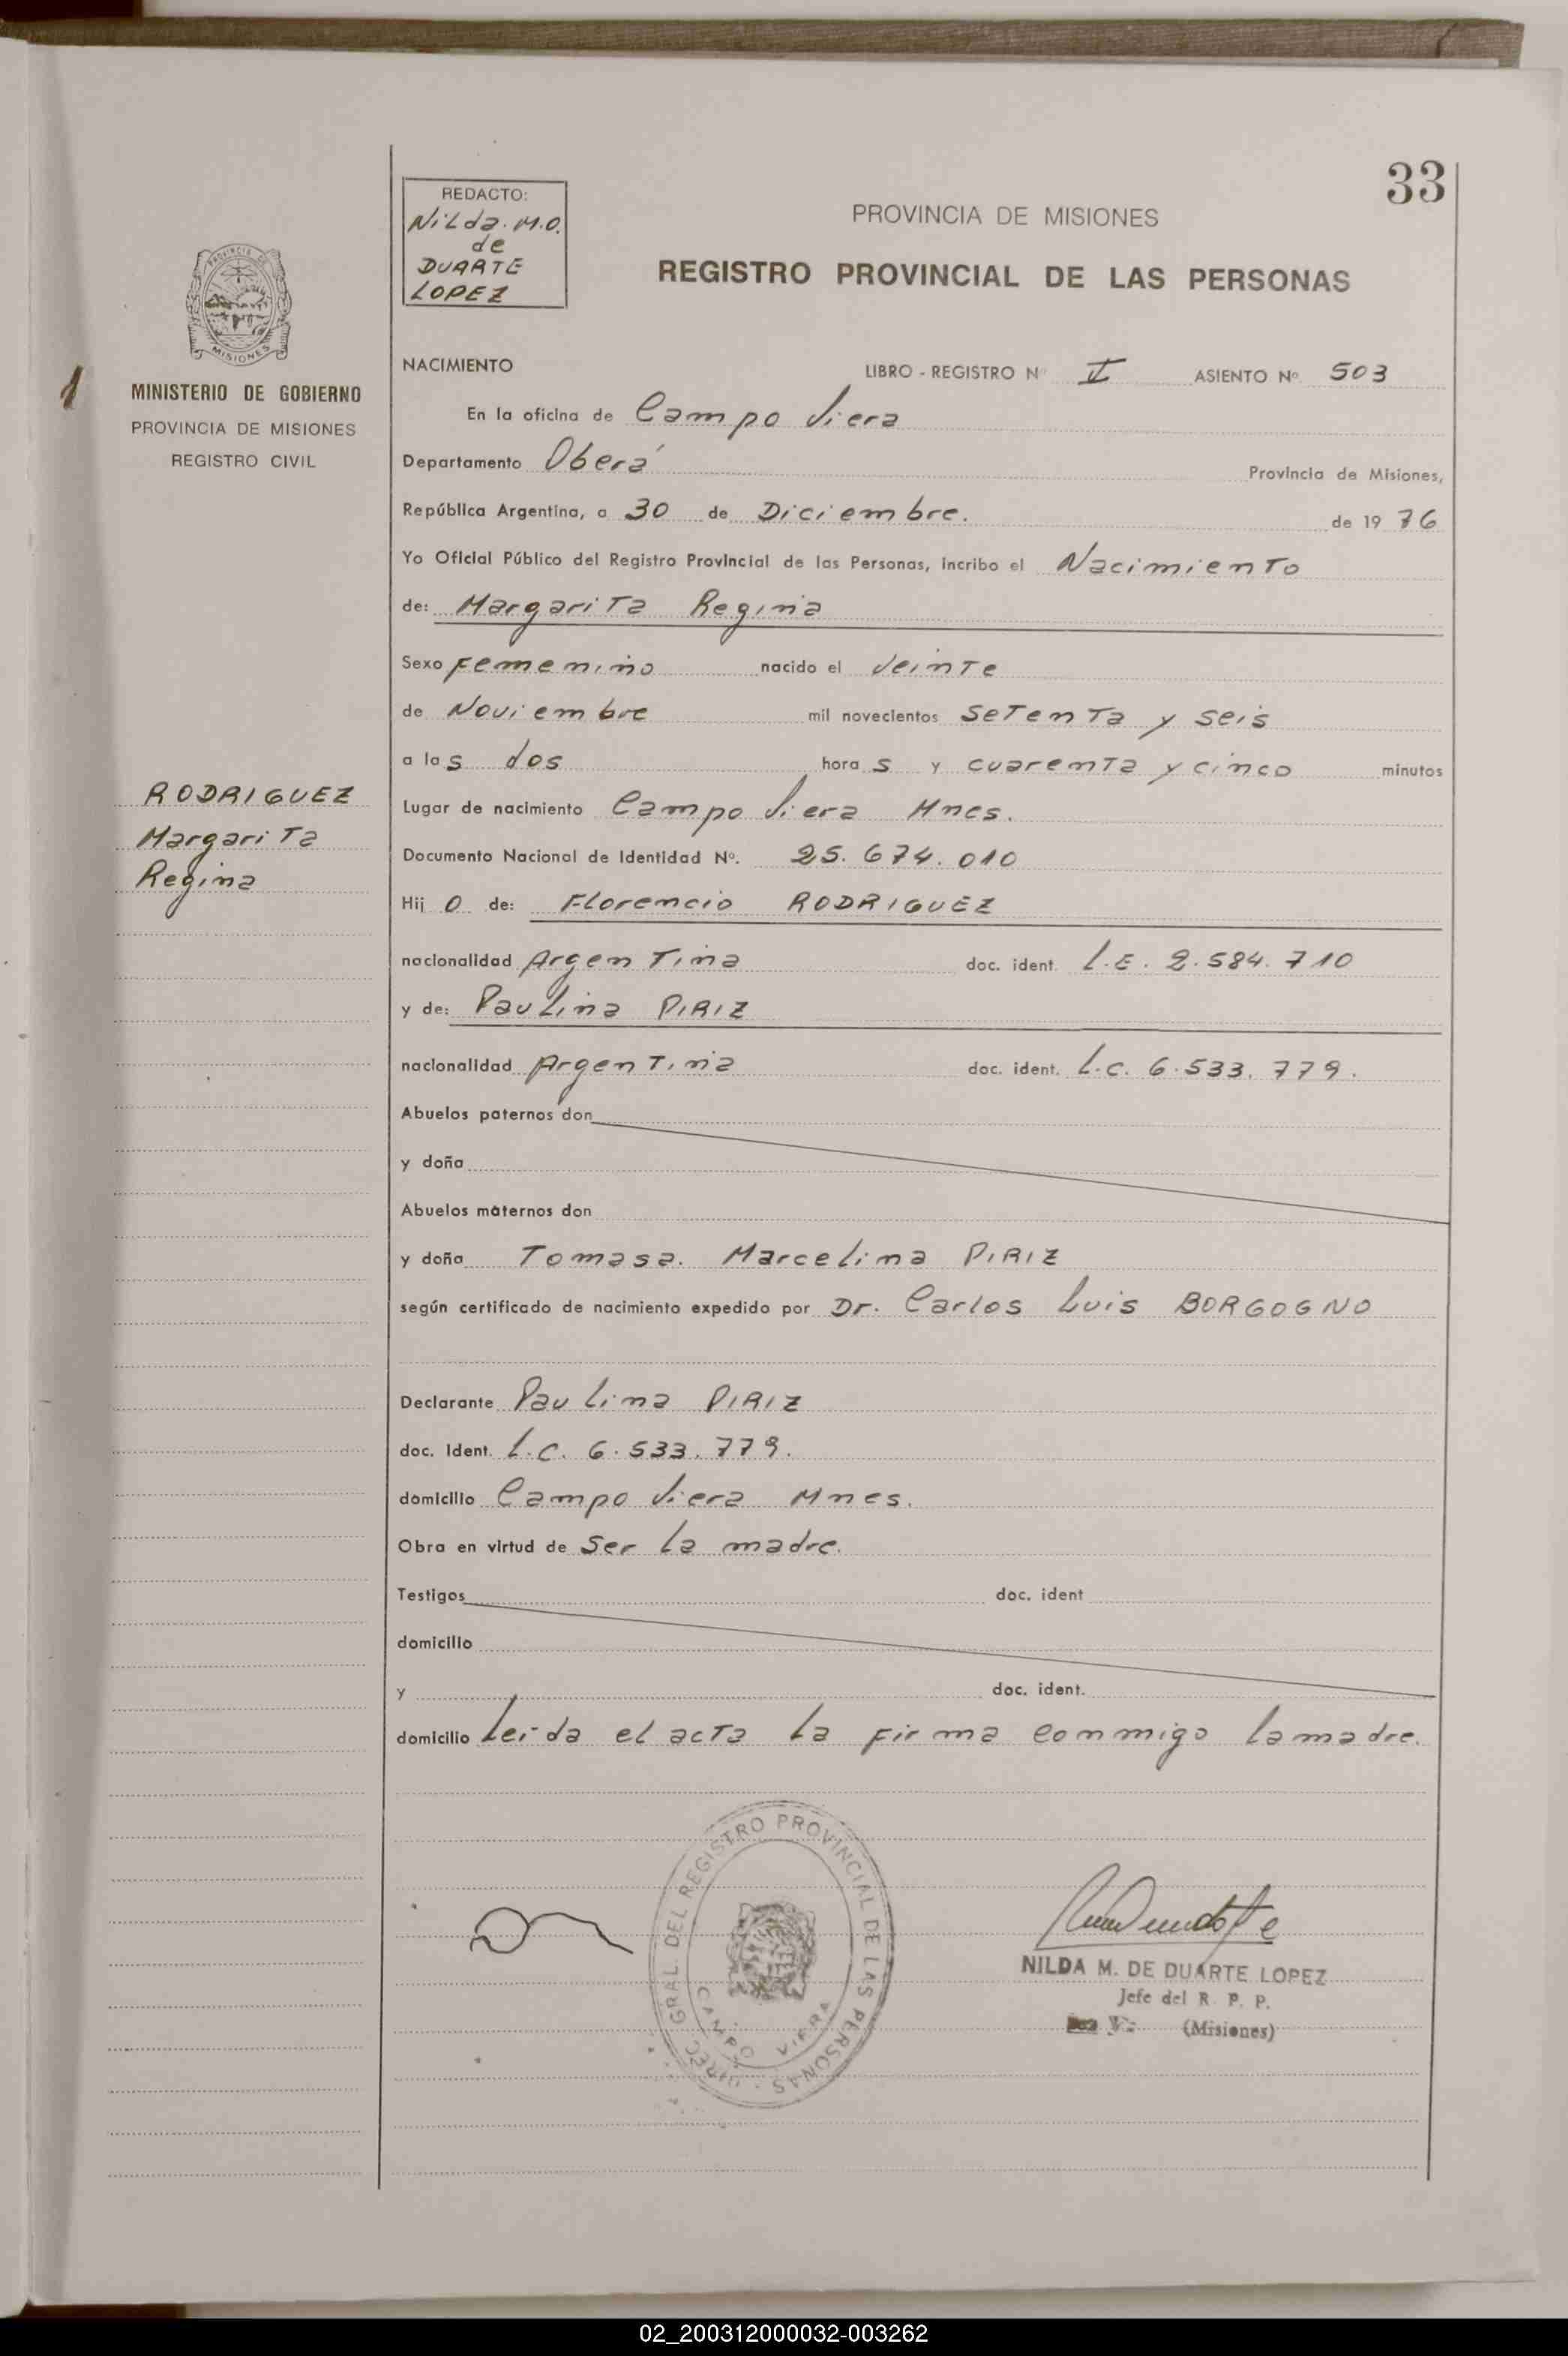 33
REDACTO:
Nilda. M.O.
de
DUARTE
LOPEZ
PROVINCIA DE MISIONES
REGISTRO PROVINCIAL DE LAS PERSONAS
PROVINCIA DE
MISIONES
MINISTERIO DE GOBIERNO
PROVINCIA DE MISIONES
REGISTRO CIVIL
1
NACIMIENTO LIBRO - REGISTRO N° II ASIENTO No. 503
En la oficina de Campo Viera
Departamento Oberá Provincia de Misiones,
República Argentina, a 30 de Diciembre. de 19 76
Yo Oficial Público del Registro Provincial de las Personas, incribo el Nacimiento
de: Margarita Regina
Sexo Femenino nacido el Veinte
de Noviembre mil novecientos Setenta y seis
a las dos horas y cuarenta y cinco minutos
Lugar de nacimiento Campo Viera Mnes.
Documento Nacional de Identidad No. 25.674.010
Hij o de: Florencio RODRIGUEZ
nacionalidad Argentina doc. ident. L.E. 2.584.710
y de: Paulina PIRIZ
nacionalidad Argentina doc. ident. L.C. 6.533.779.
Abuelos paternos don
y doña
Abuelos maternos don
y doña Tomasa. Marcelina PIRIZ
según certificado de nacimiento expedido por Dr. Carlos Luis BORGOGNO
Declarante Paulina PIRIZ
doc. Ident. L.C. 6.533.779.
domicilio Campo Viera Mnes.
Obra en virtud de Ser la madre.
Testigos doc. ident
domicilio
y doc. ident.
domicilio Leída el acta la firma conmigo la madre.
RODRIGUEZ
Margarita
Regina
DIREC. GRAL. DEL REGISTRO PROVINCIAL DE LAS PERSONAS
CAMPO VIERA
NILDA M. DE DUARTE LOPEZ
Jefe del R. P. P.
(Misiones)
02_200312000032-003262